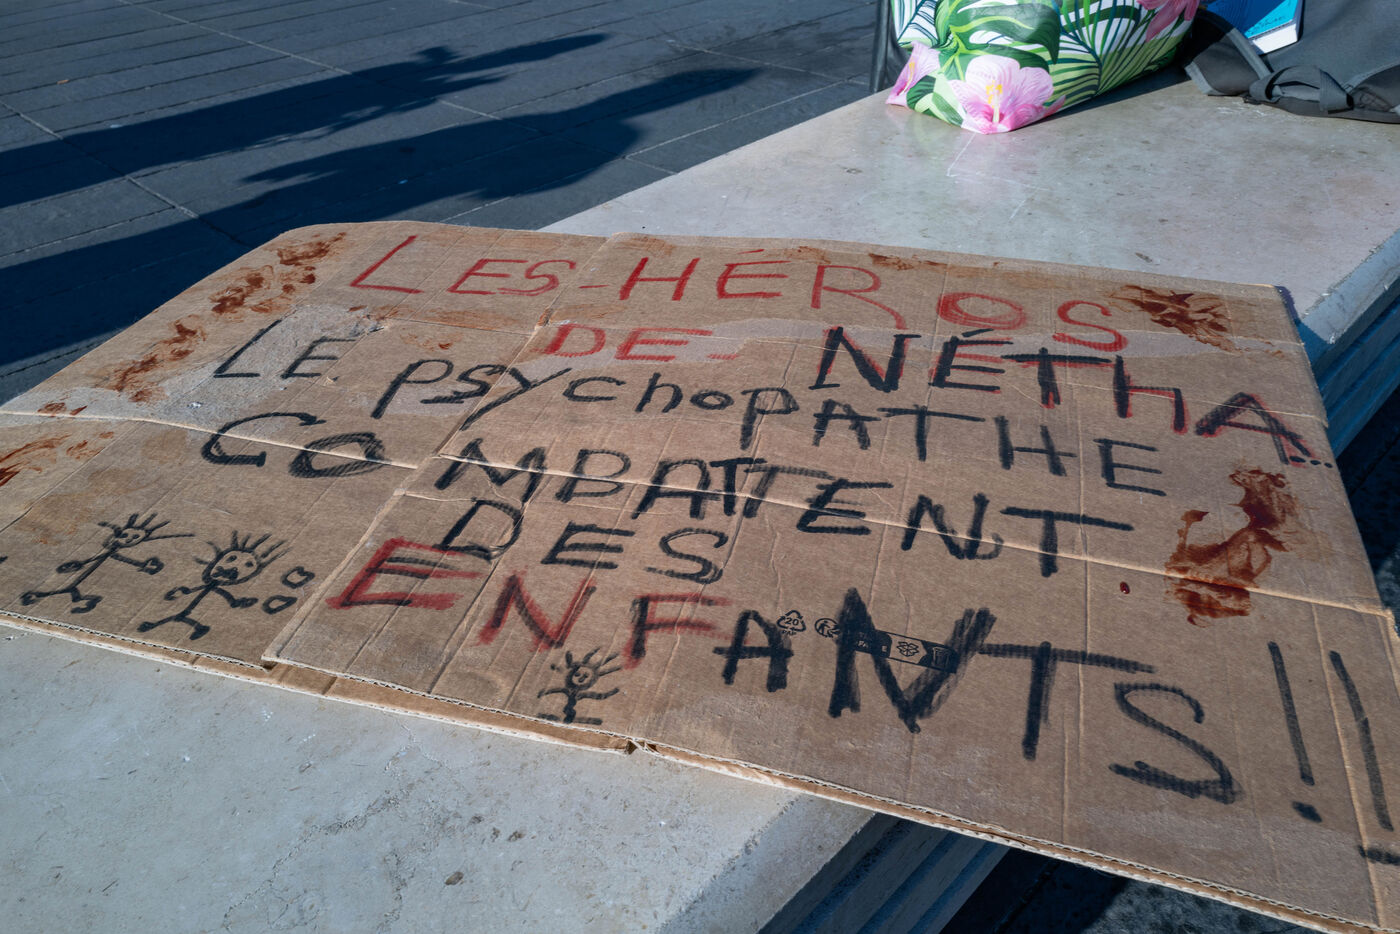 LES-HÉROS
DE-NÉTHA...
LE PSYchoPATHE
COMBATTENT
DES
ENFANTS!!
20
PAP